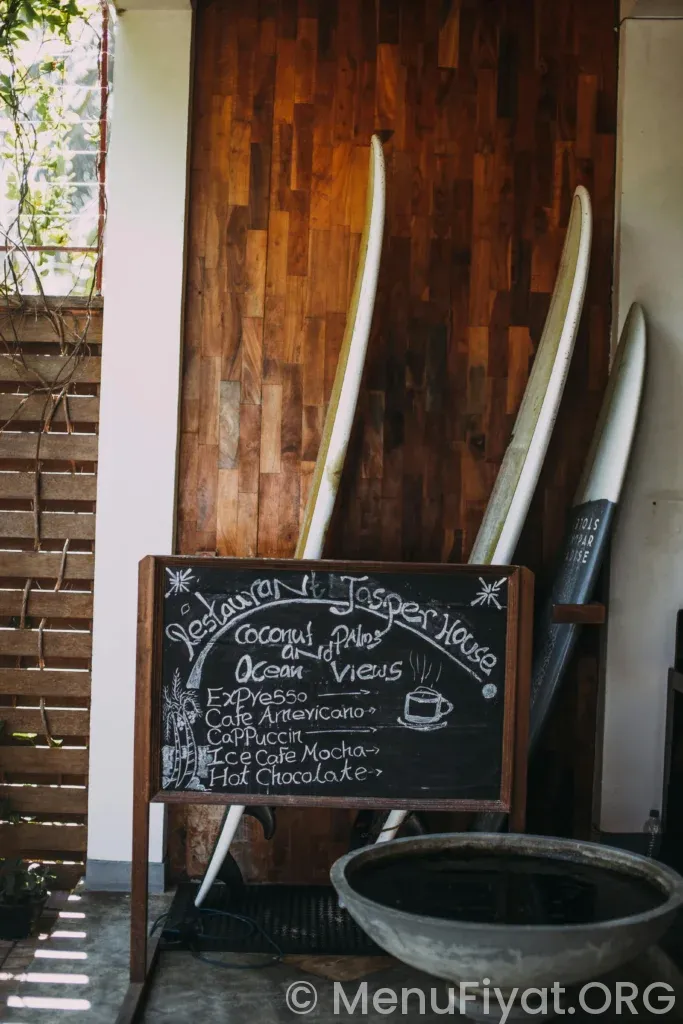 Restaurant Jasper House
Coconut Palms
and
Ocean Views
Expresso
Cafe Americano
Cappuccin
Ice Cafe Mocha
Hot Chocolate
© MenuFiyat.ORG